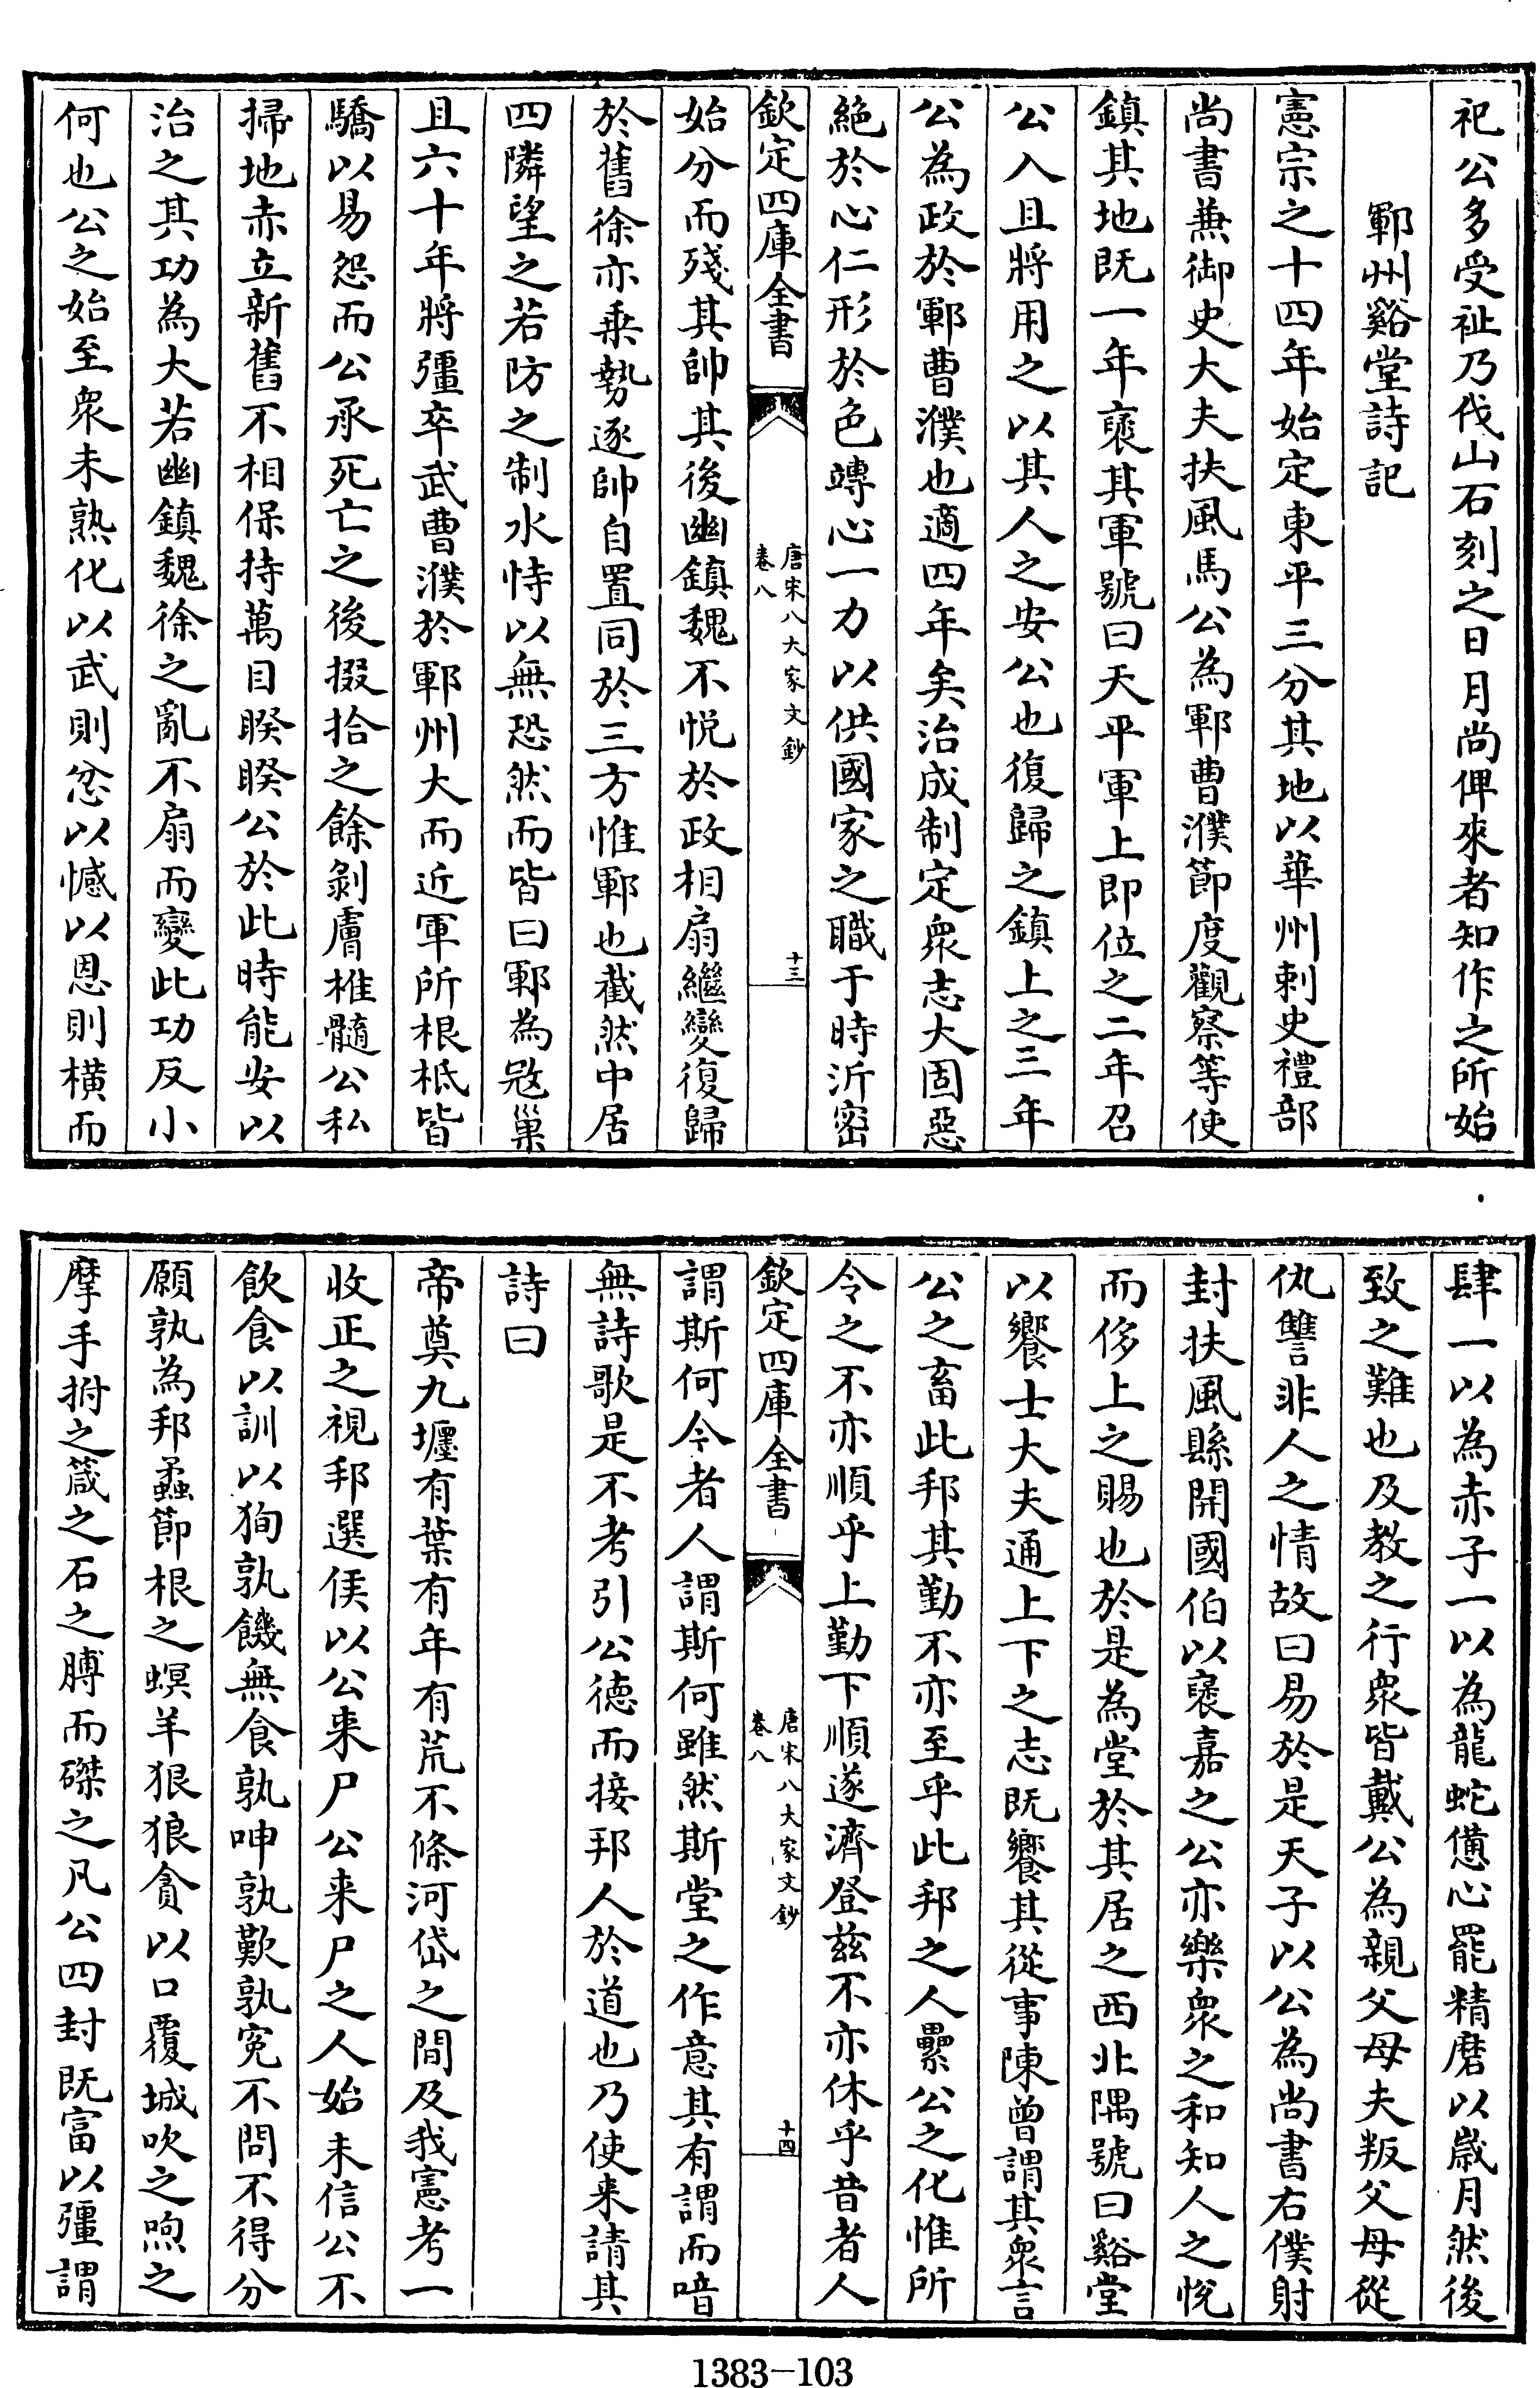 祀公多受祉乃伐山石刻之日月尚俾來者知作之所始
鄆州谿堂詩記
憲宗之十四年始定東平三分其地以華州刺史禮部
尚書兼御史大夫扶風馬公為鄆曹濮節度觀察等使
鎮其地既一年褒其軍號曰天平軍上即位之二年召
公入且將用之以其人之安公也復歸之鎮上之三年
公為政於鄆曹濮也適四年矣治成制定衆志大固惡
絶於心仁形於色竱心一力以供國家之職于時沂密
欽定四庫全書
唐宋八大家文鈔
卷八
十三
始分而殘其帥其後幽鎮魏不悦於政相扇繼變復歸
於舊徐亦乗勢逐帥自置同於三方惟鄆也截然中居
四隣望之若防之制水恃以無恐然而皆曰鄆為㓂巢
且六十年將彊卒武曹濮於鄆州大而近軍所根柢皆
驕以易怨而公承死亡之後掇拾之餘剝膚椎髓公私
掃地赤立新舊不相保持萬目睽睽公於此時能安以
治之其功為大若幽鎮魏徐之亂不扇而變此功反小
何也公之始至衆未熟化以武則忿以憾以恩則横而
肆一以為赤子一以為龍蛇憊心罷精磨以歲月然後
致之難也及教之行衆皆戴公為親父母夫叛父母從
仇讐非人之情故曰易於是天子以公為尚書右僕射
封扶風縣開國伯以褒嘉之公亦樂衆之和知人之悦
而侈上之賜也於是為堂於其居之西北隅號曰谿堂
以饗士大夫通上下之志既饗其從事陳曾謂其衆言
公之畜此邦其勤不亦至乎此邦之人纍公之化惟所
令之不亦順乎上勤下順遂濟登兹不亦休乎昔者人
欽定四庫全書
唐宋八大家文鈔
卷八
十四
謂斯何今者人謂斯何雖然斯堂之作意其有謂而喑
無詩歌是不考引公徳而接邦人於道也乃使来請其
詩曰
帝奠九㕓有葉有年有荒不條河岱之間及我憲考一
收正之視邦選侯以公来尸公来尸之人始未信公不
飲食以訓以狥孰饑無食孰呻孰歎孰寃不問不得分
願孰為邦蟊節根之螟羊狠狼貪以口覆城吹之喣之
摩手拊之箴之石之膊而磔之凡公四封既富以彊謂
1383-103